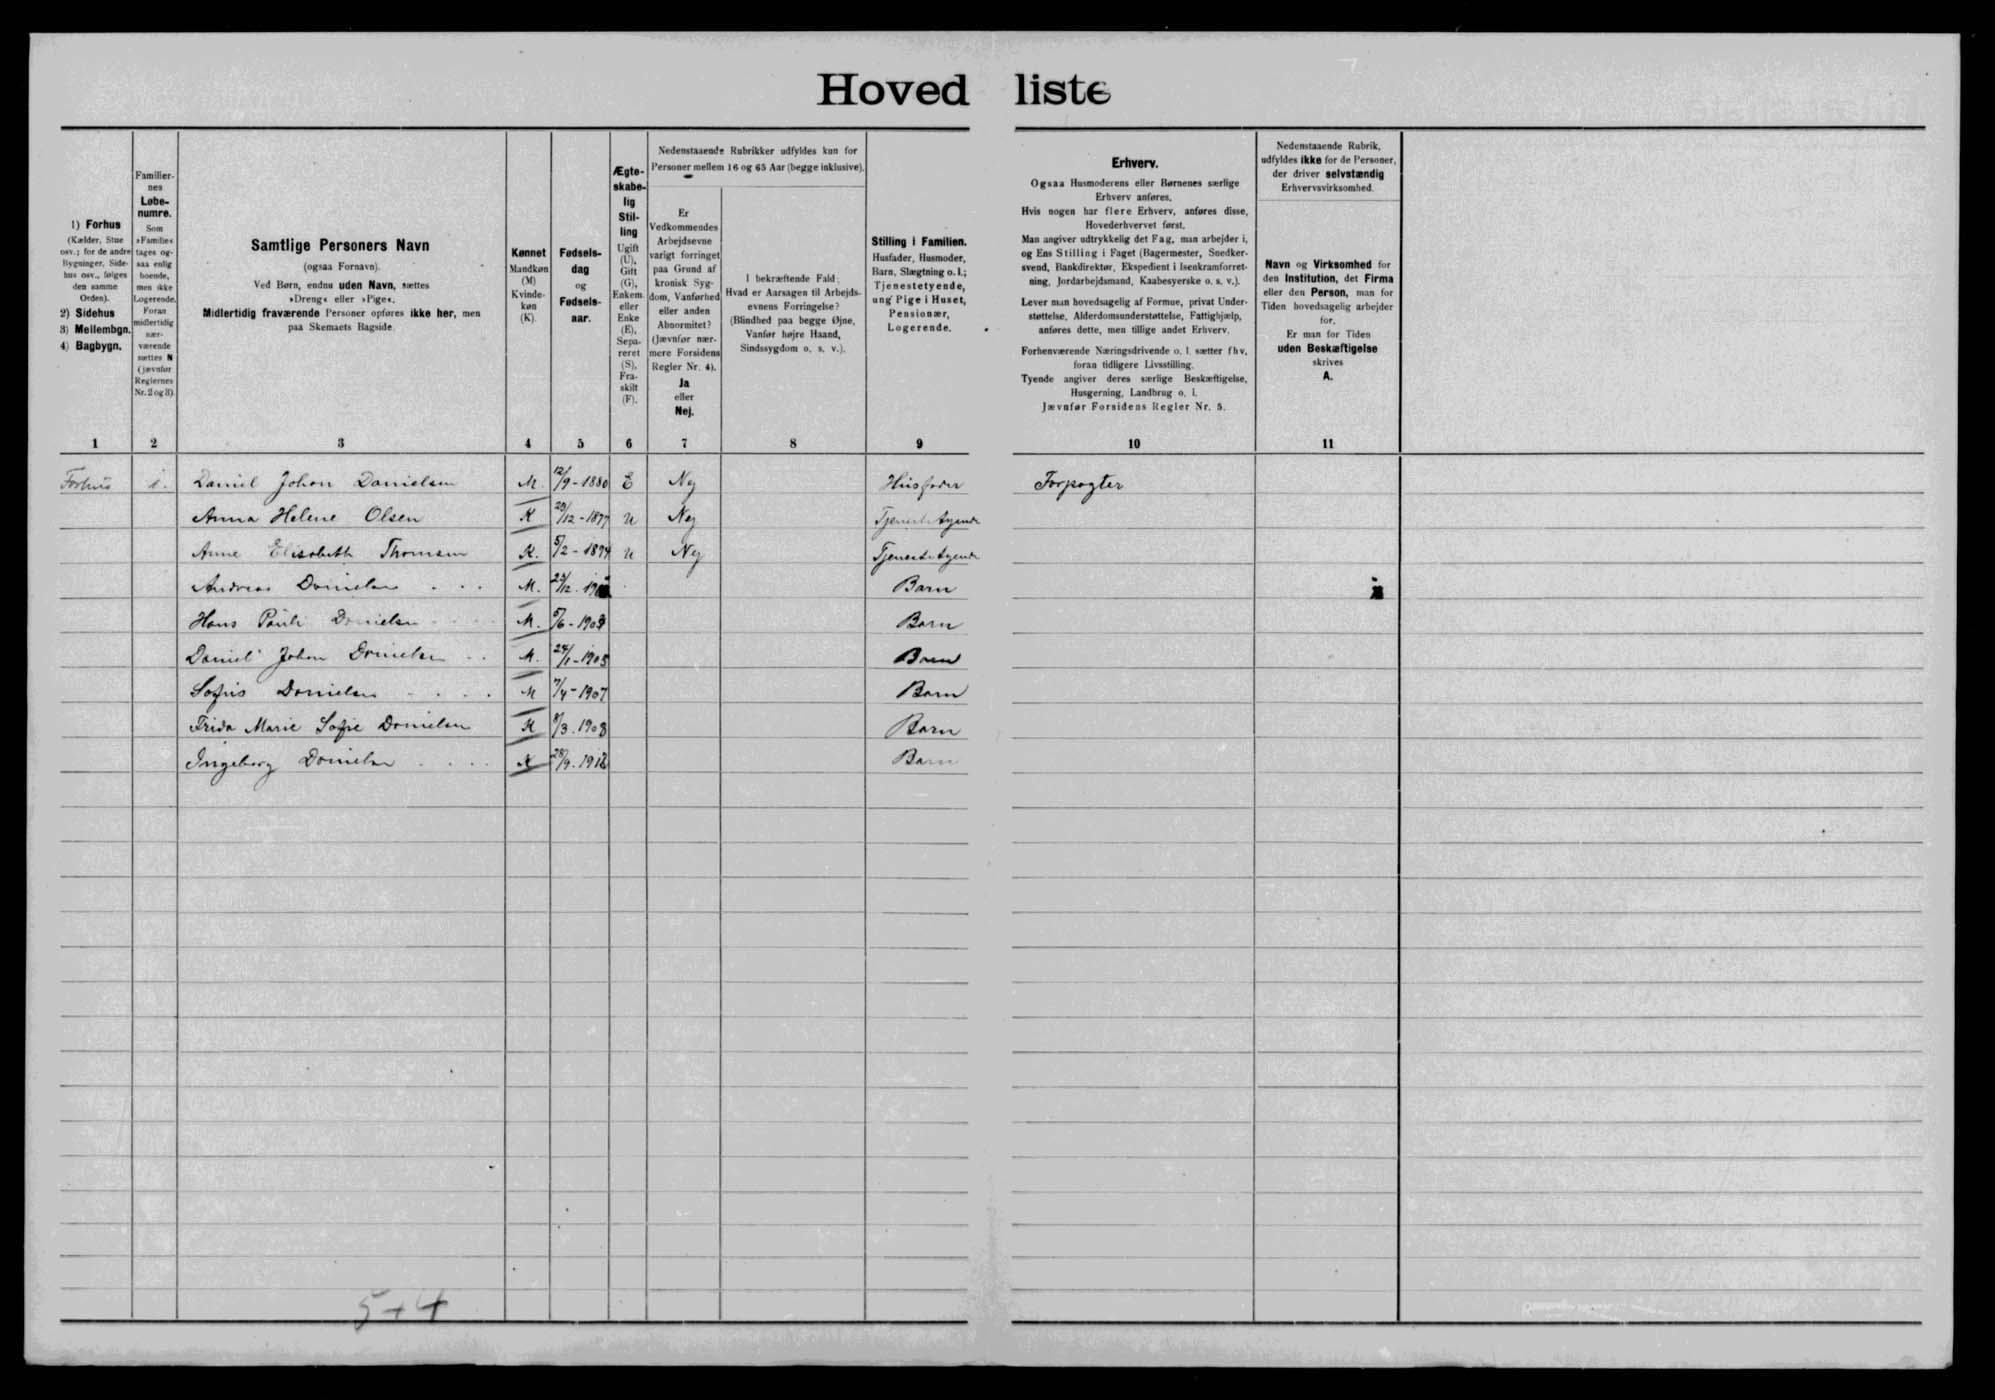 Hovedliste
1) Forhus
(Kælder, Stue
osv.; for de andre
Bygninger, Side-
hus osv., følges
den samme
Orden).
2) Sidehus
3) Mellembgn.
4) Bagbygn.
Familier-
nes
Løbe-
numre.
Som
»Familie«
tages og-
saa enlig
boende,
men ikke
Logerende.
Foran
midlertidig
nær-
værende
sættes N
(jævnfør
Reglernes
Nr. 2 og 3).
Samtlige Personers Navn
(ogsaa Fornavn).
Ved Børn, endnu uden Navn, sættes
»Dreng« eller »Pige«.
Midlertidig fraværende Personer opføres ikke her, men
paa Skemaets Bagside.
Kønnet
Mandkøn
(M)
Kvinde-
køn
(K).
Fødsels-
dag
og
Fødsels-
aar.
Ægte-
skabe-
lig
Stil-
ling
Ugift
(U),
Gift
(G),
Enkem.
eller
Enke
(E),
Sepa-
reret
(S),
Fra-
skilt
(F).
Nedenstaaende Rubrikker udfyldes kun for
Personer mellem 16 og 65 Aar (begge inklusive).
Er
Vedkommendes
Arbejdsevne
varigt forringet
paa Grund af
kronisk Syg-
dom, Vanførhed
eller anden
Abnormitet?
(Jævnfør nær-
mere Forsidens
Regler Nr. 4).
Ja
eller
Nej.
I bekræftende Fald:
Hvad er Aarsagen til Arbejds-
evnens Forringelse?
(Blindhed paa begge Øjne,
Vanfør højre Haand,
Sindssygdom o. s. v.).
Stilling i Familien.
Husfader, Husmoder,
Barn, Slægtning o. l.;
Tjenestetyende,
ung Pige i Huset,
Pensionær,
Logerende.
Erhverv.
Ogsaa Husmoderens eller Børnenes særlige
Erhverv anføres.
Hvis nogen har flere Erhverv, anføres disse,
Hovederhvervet først.
Man angiver udtrykkelig det Fag, man arbejder i,
og Ens Stilling i Faget (Bagermester, Snedker-
svend, Bankdirektør, Ekspedient i Isenkramforret-
ning, Jordarbejdsmand, Kaabesyerske o. s. v.).
Lever man hovedsagelig af Formue, privat Under-
støttelse, Alderdomsunderstøttelse, Fattighjælp,
anføres dette, men tillige andet Erhverv.
Forhenværende Næringsdrivende o. l. sætter fhv.
foran tidligere Livsstilling.
Tyende angiver deres særlige Beskæftigelse,
Husgerning, Landbrug o. l.
Jævnfør Forsidens Regler Nr. 5.
Nedenstaaende Rubrik,
udfyldes ikke for de Personer,
der driver selvstændig
Erhvervsvirksomhed.
Navn og Virksomhed for
den Institution, det Firma
eller den Person, man for
Tiden hovedsagelig arbejder
for.
Er man for Tiden
uden Beskæftigelse
skrives
A.
1 2 3 4 5 6 7 8 9 10 11
Forhus 1. Daniel Johan Danielsen M. 12/9-1880 E Nej Husfader Forpagter
Anna Helene Olsen K 29/12-1877 U Nej Tjenestetyende
Anne Elisabeth Thomsen K. 5/2-1894 U Nej Tjenestetyende
Andreas Danielsen M. Barn
Hans Pauli Danielsen M. Barn
Daniel Johan Danielsen M. 24/1-1905 Barn
Sofus Danielsen M 7/4-1907 Barn
Frida Marie Sofie Danielsen K 8/3.1908 Barn
Ingeborg Danielsen K Barn
5+4